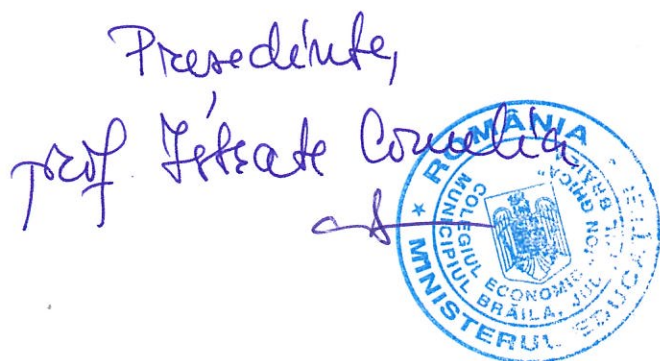 Presedinte,
prof Istrate Cornelia
ROMÂNIA
MINISTERUL EDUCAȚIEI
COLEGIUL ECONOMIC „ION GHICA”
MUNICIPIUL BRĂILA, JUD. BRĂILA